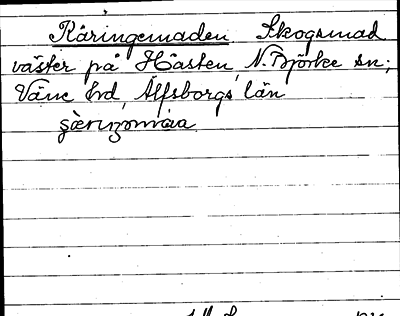 Käringemaden Skogsmad
väster på Håsten, N. Björke sn;
Väne hd, Älfsborgs län